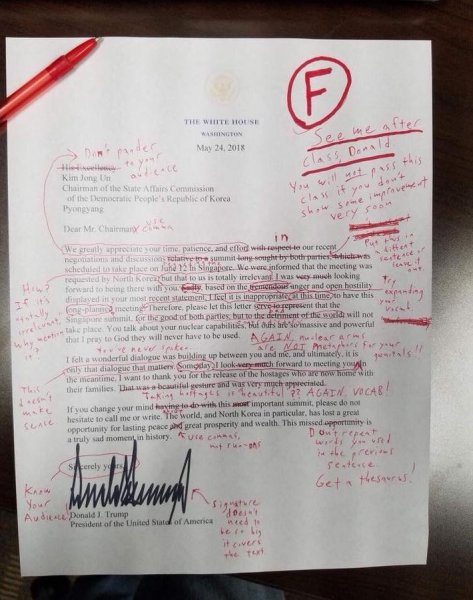 F
See me after
class, Donald
You will not pass this
class if you don't
show some improvement
very soon
THE WHITE HOUSE
WASHINGTON
May 24, 2018
Don't pander
to your
audience
His Excellency
Kim Jong Un
Chairman of the State Affairs Commission
of the Democratic People's Republic of Korea
Pyongyang
use
comma
Dear Mr. Chairman:
in
We greatly appreciate your time, patience, and effort with respect to our recent
negotiations and discussions relative to a summit long sought by both parties, which was
scheduled to take place on June 12 in Singapore. We were informed that the meeting was
requested by North Korea, but that to us is totally irrelevant. I was very much looking
forward to being there with you. Sadly, based on the tremendous anger and open hostility
displayed in your most recent statement, I feel it is inappropriate, at this time, to have this
long-planned meeting. Therefore, please let this letter serve to represent that the
Singapore summit, for the good of both parties, but to the detriment of the world, will not
take place. You talk about your nuclear capabilities, but ours are so massive and powerful
that I pray to God they will never have to be used.
Put this in
a different
sentence or
leave it
out
Try
expanding
your
vocab
How?
If it's
totally
irrelevant,
why mention
it?
AGAIN, nuclear arms
are NOT metaphors for your
genitals!!
You've never spoken
I felt a wonderful dialogue was building up between you and me, and ultimately, it is
only that dialogue that matters. Some day, I look very much forward to meeting you. In
the meantime, I want to thank you for the release of the hostages who are now home with
their families. That was a beautiful gesture and was very much appreciated.
This
doesn't
make
sense
Taking hostages is beautiful?? AGAIN, VOCAB!
If you change your mind having to do with this most important summit, please do not
hesitate to call me or write. The world, and North Korea in particular, has lost a great
opportunity for lasting peace and great prosperity and wealth. This missed opportunity is
a truly sad moment in history.
use commas,
not run-ons
Don't repeat
words you used
in the previous
sentence.
Get a thesaurus!
Sincerely yours,
Know
Your
Audience!
Donald J. Trump
President of the United States of America
signature
doesn't
need to
be so big
it covers
the text.